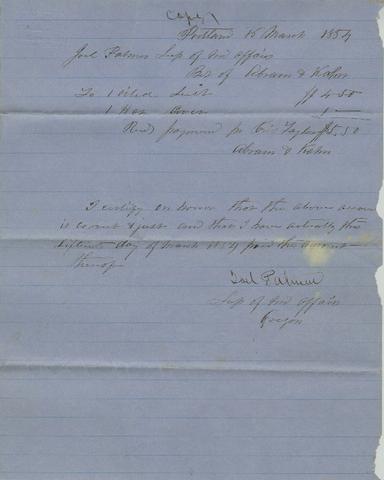 Copy
Portland 15 March 1854
Joel Palmer Sup of Ind Affairs
Bt of Abram & Kohn
To 1 oiled Suit $4.50
1 Hat Cover 1 —
Recd payment pr Taylor $5.50
Abram & Kohn
I certify on honor that the above account
is correct & just and that I have actually this
fifteenth day of March 1854 paid the amount
thereof
Joel Palmer
Sup of Ind Affairs
Oregon